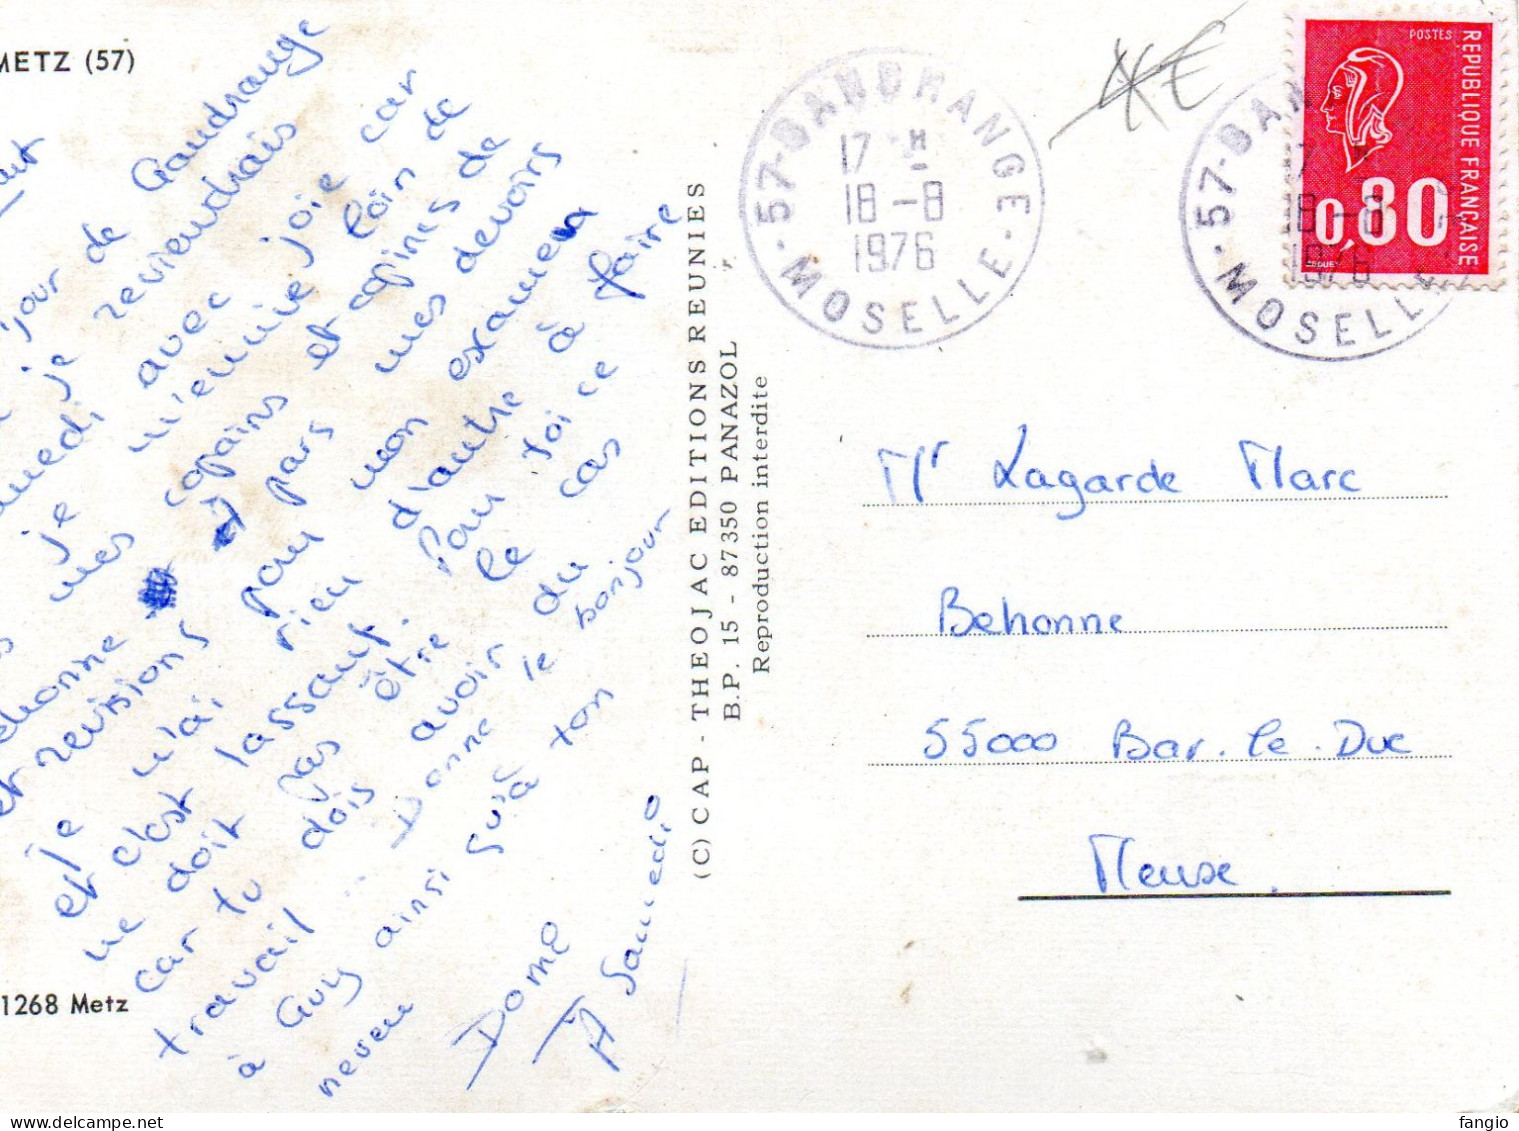 METZ (57)
jour de Gandrange
je reviendrais
avec joie car
je m'ennuie loin de
mes copains et copines de
pars mes devoirs
et revisions pour mon examen
je n'ai rien d'autre à faire
et c'est lassant. Pour toi ce
ne doit pas être le cas
car tu dois avoir du
travail. Donne le bonjour
à Guy ainsi qu'à ton
neveu
Domé
A Samedi
1268 Metz
(C) CAP - THEOJAC EDITIONS REUNIES
B.P. 15 - 87350 PANAZOL
Reproduction interdite
57-GANDRANGE
17 H
18-8
1976
MOSELLE
57-GAN
17 H
18-8
1976
MOSELLE
POSTES
REPUBLIQUE FRANÇAISE
0,80
Mr Lagarde Marc
Behonne
55000 Bar-le-Duc
Meuse.
fangio